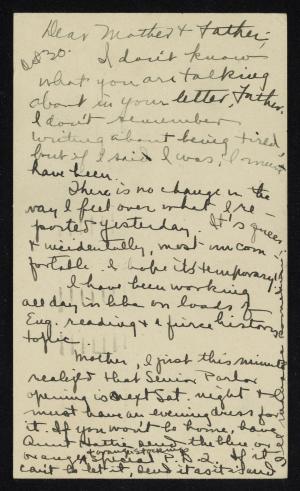 Dear Mother & Father,
I don't know
what you are talking
about in your letter, Father.
I don't remember
writing about being tired,
but if I said I was, I must
have been.
There is no change in the
way I feel over what I re-
ported yesterday. It's queer,
& incidentally, most uncom
fortable. I hope its temporary!
I have been working
all day in libe on loads of
Eng. reading & a fierce history
topic.
Mother, I just this minute
realized that Senior Parlor
opening is next Sat. night & I
must have an evening dress for
it. If you won't be home, have
Aunt Hattie send the blue or
orange Special P.D.Q. If it
can't be let it, send it as it is and